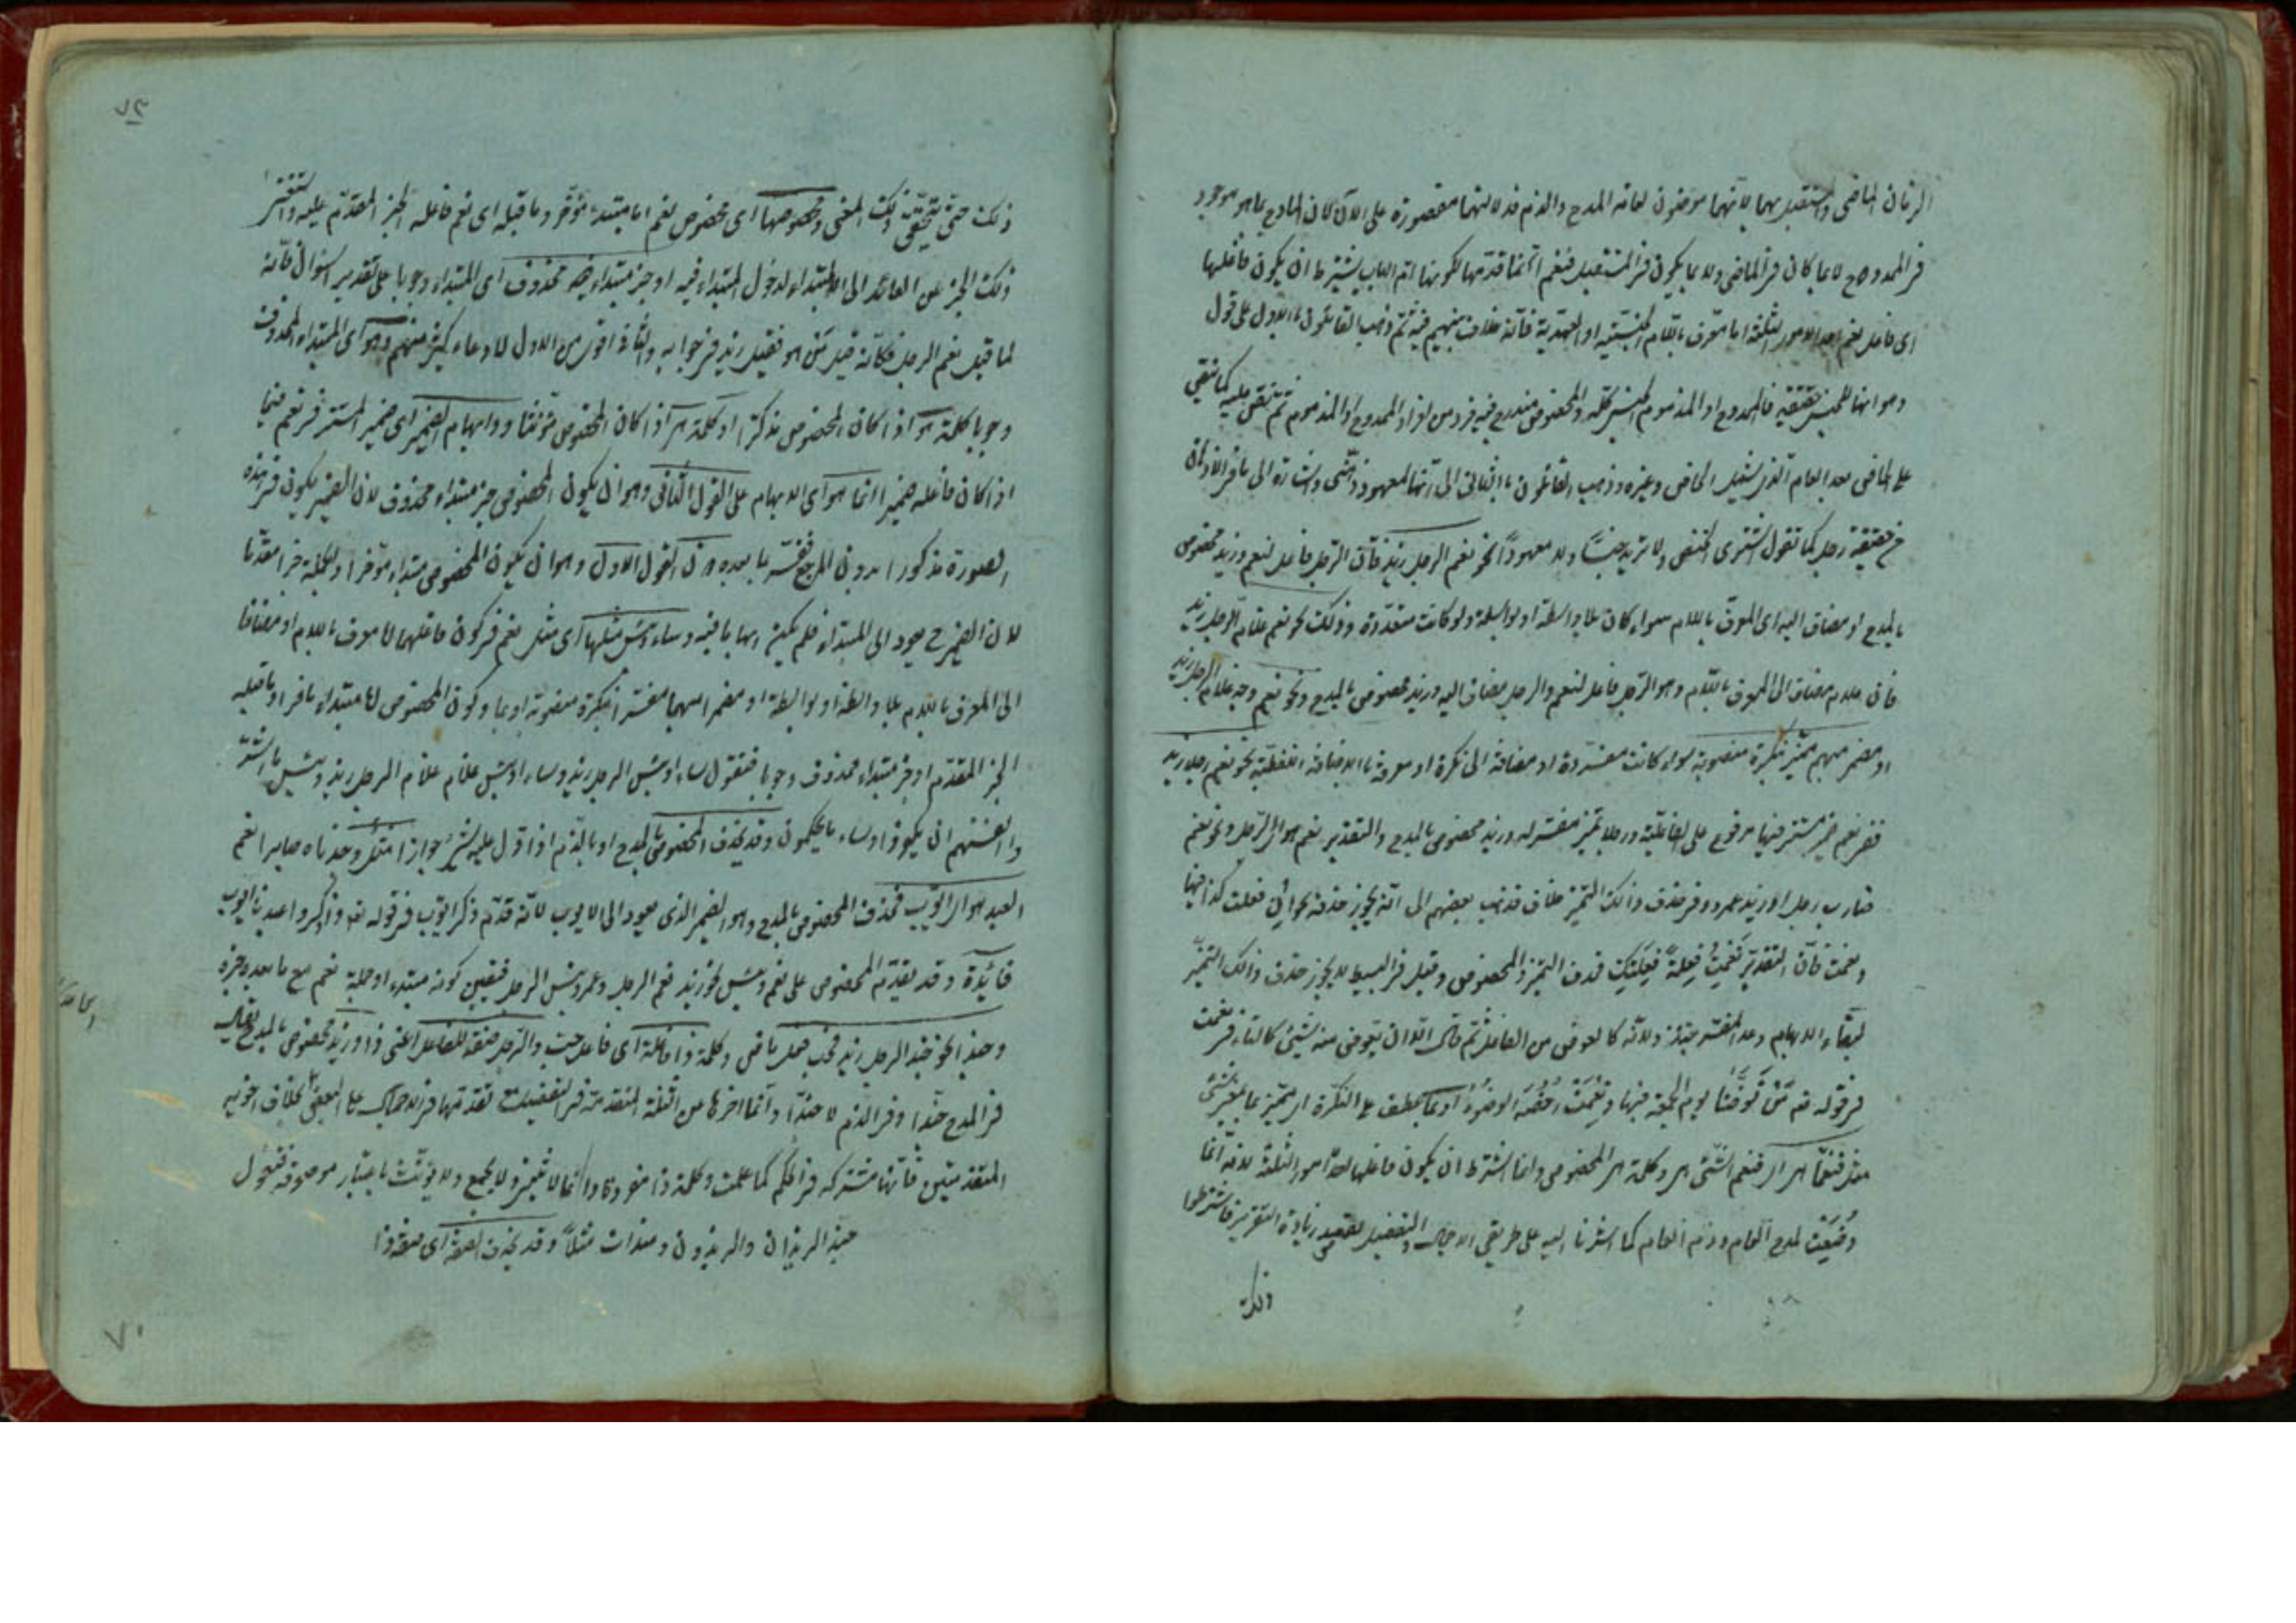 الزمان الماضى والمستقبل بهما لانهما موضوعان لعامة المدح والذم فدلالتهما مقصورة على الآن لان المادح بما هو موجود
فى الممدوح لا بما كان فى الماضى ولا بما يكون فى المستقبل فنعم انما قدمها لكونها ام الباب يشترط ان يكون فاعلها
اى فاعل نعم احد الامور الثلثة اما معرف باللام الجنسية او العهدية فانه خلاف بينهم فيه ثم ذهب القائلون بالاول على قول
وهو انها للجنس حقيقة فالممدوح او المذموم الجنس كله والمخصوص مندرج فيه فرد من افراد الممدوح او المذموم ثم
على الخاص بعد العام الذى يشمل الخاص وغيره وذهب القائلون بالثانى الى انها لمعهود ذهنى واشارة الى ما فى الاذهان
من حقيقة رجل كما تقول اشترى اللحم ولا تريد جنسا ولا معهودا نحو نعم الرجل زيد فان الرجل فاعل لنعم وزيد مخصوص
بالمدح او مضاف اليه اى المعرف باللام سواء كان بلا واسطة او بواسطة ولو كانت متعددة وذلك نحو نعم غلام الرجل زيد
فان غلام مضاف الى المعرف باللام وهو الرجل فاعل لنعم والرجل مضاف اليه وزيد مخصوص بالمدح ونحو نعم وجه غلام الرجل زيد
او مضمر مبهم مميز بنكرة منصوبة سواء كانت مفردة او مضافة الى نكرة او معرفة بالاضافة اللفظية نحو نعم رجلا زيد
ففى نعم ضمير مستتر فيها مرفوع على الفاعلية ورجلا تميز مفسر له وزيد مخصوص بالمدح والتقدير نعم هو اى الرجل ونحو نعم
ضارب رجل او زيد عمرو وفى حذف ذلك التميز خلاف فذهب بعضهم الى انه يجوز حذفه نحو ان فعلت كذا فبها
ونعمت فان التقدير نعمت فعلة فعلتك فحذف التميز والمخصوص وقيل فى البسيط لا يجوز حذف ذلك التميز
لبقاء الابهام وعدم المفسر حينئذ ولانه كالعوض من الفاعل ثم قال الا ان يعوض منه شيئ كالتاء فى نعمت
فى قوله عم من توضأ يوم الجمعة فبها ونعمت رخصة الوضوء او بما عطف على النكرة اى مميز بما بمعنى شئ
مثل فنعما هى اى فنعم الشئى هى وكلمة هى المخصوص وانما اشترط ان يكون فاعلها احد امور الثلثة لانه انما
وضعت لمدح العام وذم العام كما اشرنا اليه على طريقى الاجمال والتفصيل لقصد زيادة التقرير فاشترطوا
ذلك
٧٣
ذلك حتى يتحقق ذلك المعنى ومخصوصها اى مخصوص نعم اما مبتدء مؤخر وما قبله اى نعم فاعله الخبر المقدم عليه واستغنى
ذلك الخبر عن العائد الى المبتداء لدخول المبتداء فيه او خبر مبتداء محذوف اى المبتداء وجوبا على تقدير السؤال فانه
لما قيل نعم الرجل فكانه قيل من هو فقيل زيد فى جوابه والثانى اقوى من الاول لادعاء كثير منهم وهو اى المبتداء المحذوف
وجوبا كلمة هو اذا كان المخصوص مذكرا او كلمة هى اذا كان المخصوص مؤنثا وابهام الضمير اى ضمير المستتر فى نعم فيما
اذا كان فاعله ضميرا انما هو اى الابهام على القول الثانى وهو ان يكون المخصوص خبر مبتداء محذوف لان الضمير يكون فى هذه
الصورة مذكورا بدون المرجع ففسر بما بعده دون القول الاول وهو ان يكون المخصوص مبتداء مؤخرا والجملة خبرا مقدما
لان الضمير ح يعود الى المبتداء فلم يكن ابهاما فيه وساء وبئس مثلها اى مثل نعم فى كون فاعلهما اما معرف باللام او مضافا
الى المعرف باللام بلا واسطة او بواسطة او مضمرا مبهما مفسرا بنكرة منصوبة او بما وكون المخصوص اما مبتداء ما خر او ما قبله
الخبر المقدم او خبر مبتداء محذوف وجوبا فتقول ساء او بئس الرجل زيد وساء او بئس غلام غلام الرجل زيد وبئس ما اشتروا
به انفسهم ان يكفروا وساء ما يحكمون وقد يحذف المخصوص بالمدح او بالذم اذا دل عليه شئ جوازا مثل وجدناه صابرا نعم
العبد هو اى ايوب فحذف المخصوص بالمدح وهو الضمير الذى يعود الى الايوب لانه قدم ذكر ايوب فى قوله تع واذكر عبدنا ايوب
فائدة وقد يقدم المخصوص على نعم وبئس نحو زيد نعم الرجل وعمرو بئس الرجل فتعين كونه مبتدء او جملة نعم مع ما بعده خبره
وحبذا نحو حبذا الرجل زيد فحب فعل ماض وكلمة ذا فاعله اى فاعل حب والرجل صفة للفاعل اعنى ذا وزيد مخصوص بالمدح
فى المدح حبذا وفى الذم لا حبذا وانما اخرها من الثلثة المتقدمة فى التفصيل
المتقدمتين فانها مشتركة فى الحكم كما علمت وكلمة ذا مفردة دائما لا تتغير ولا يجمع ولا يؤنث باعتبار موصوفه فتقول
حبذا الزيدان والزيدون وهندات مثلا وقد يحذف الصفة اى صفة ذا
٧٠